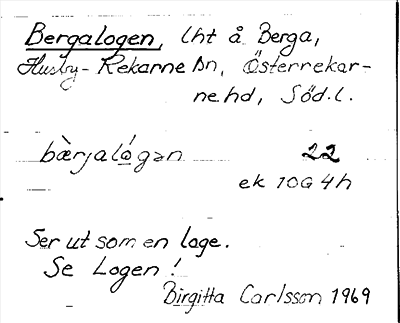 Bergalogen, lht å Berga,
Husby-Rekarne sn, Österrekar-
ne hd, Söd.l.
bærjalógən 22
ek 10G 4h
Ser ut som en loge.
Se Logen!
Birgitta Carlsson 1969